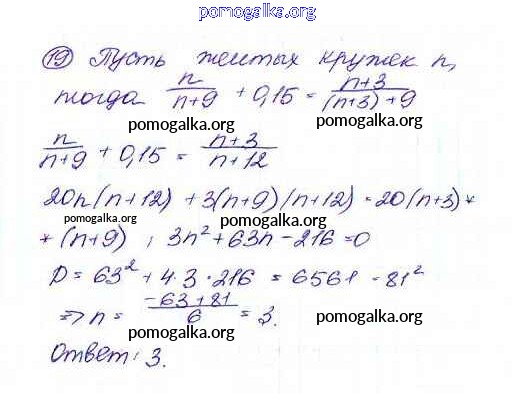 pomogalka.org
19 Пусть желтых кружек n,
тогда n/(n+9) + 0,15 = (n+3)/((n+3)+9)
pomogalka.org pomogalka.org
n/(n+9) + 0,15 = (n+3)/(n+12)
pomogalka.org
20n(n+12) + 3(n+9)(n+12) = 20(n+3)*
pomogalka.org pomogalka.org
* (n+9) ; 3n² + 63n - 216 = 0
D = 63² + 4·3·216 = 6561 = 81²
⇒ n = (-63+81)/6 = 3.
pomogalka.org pomogalka.org
pomogalka.org
Ответ: 3.